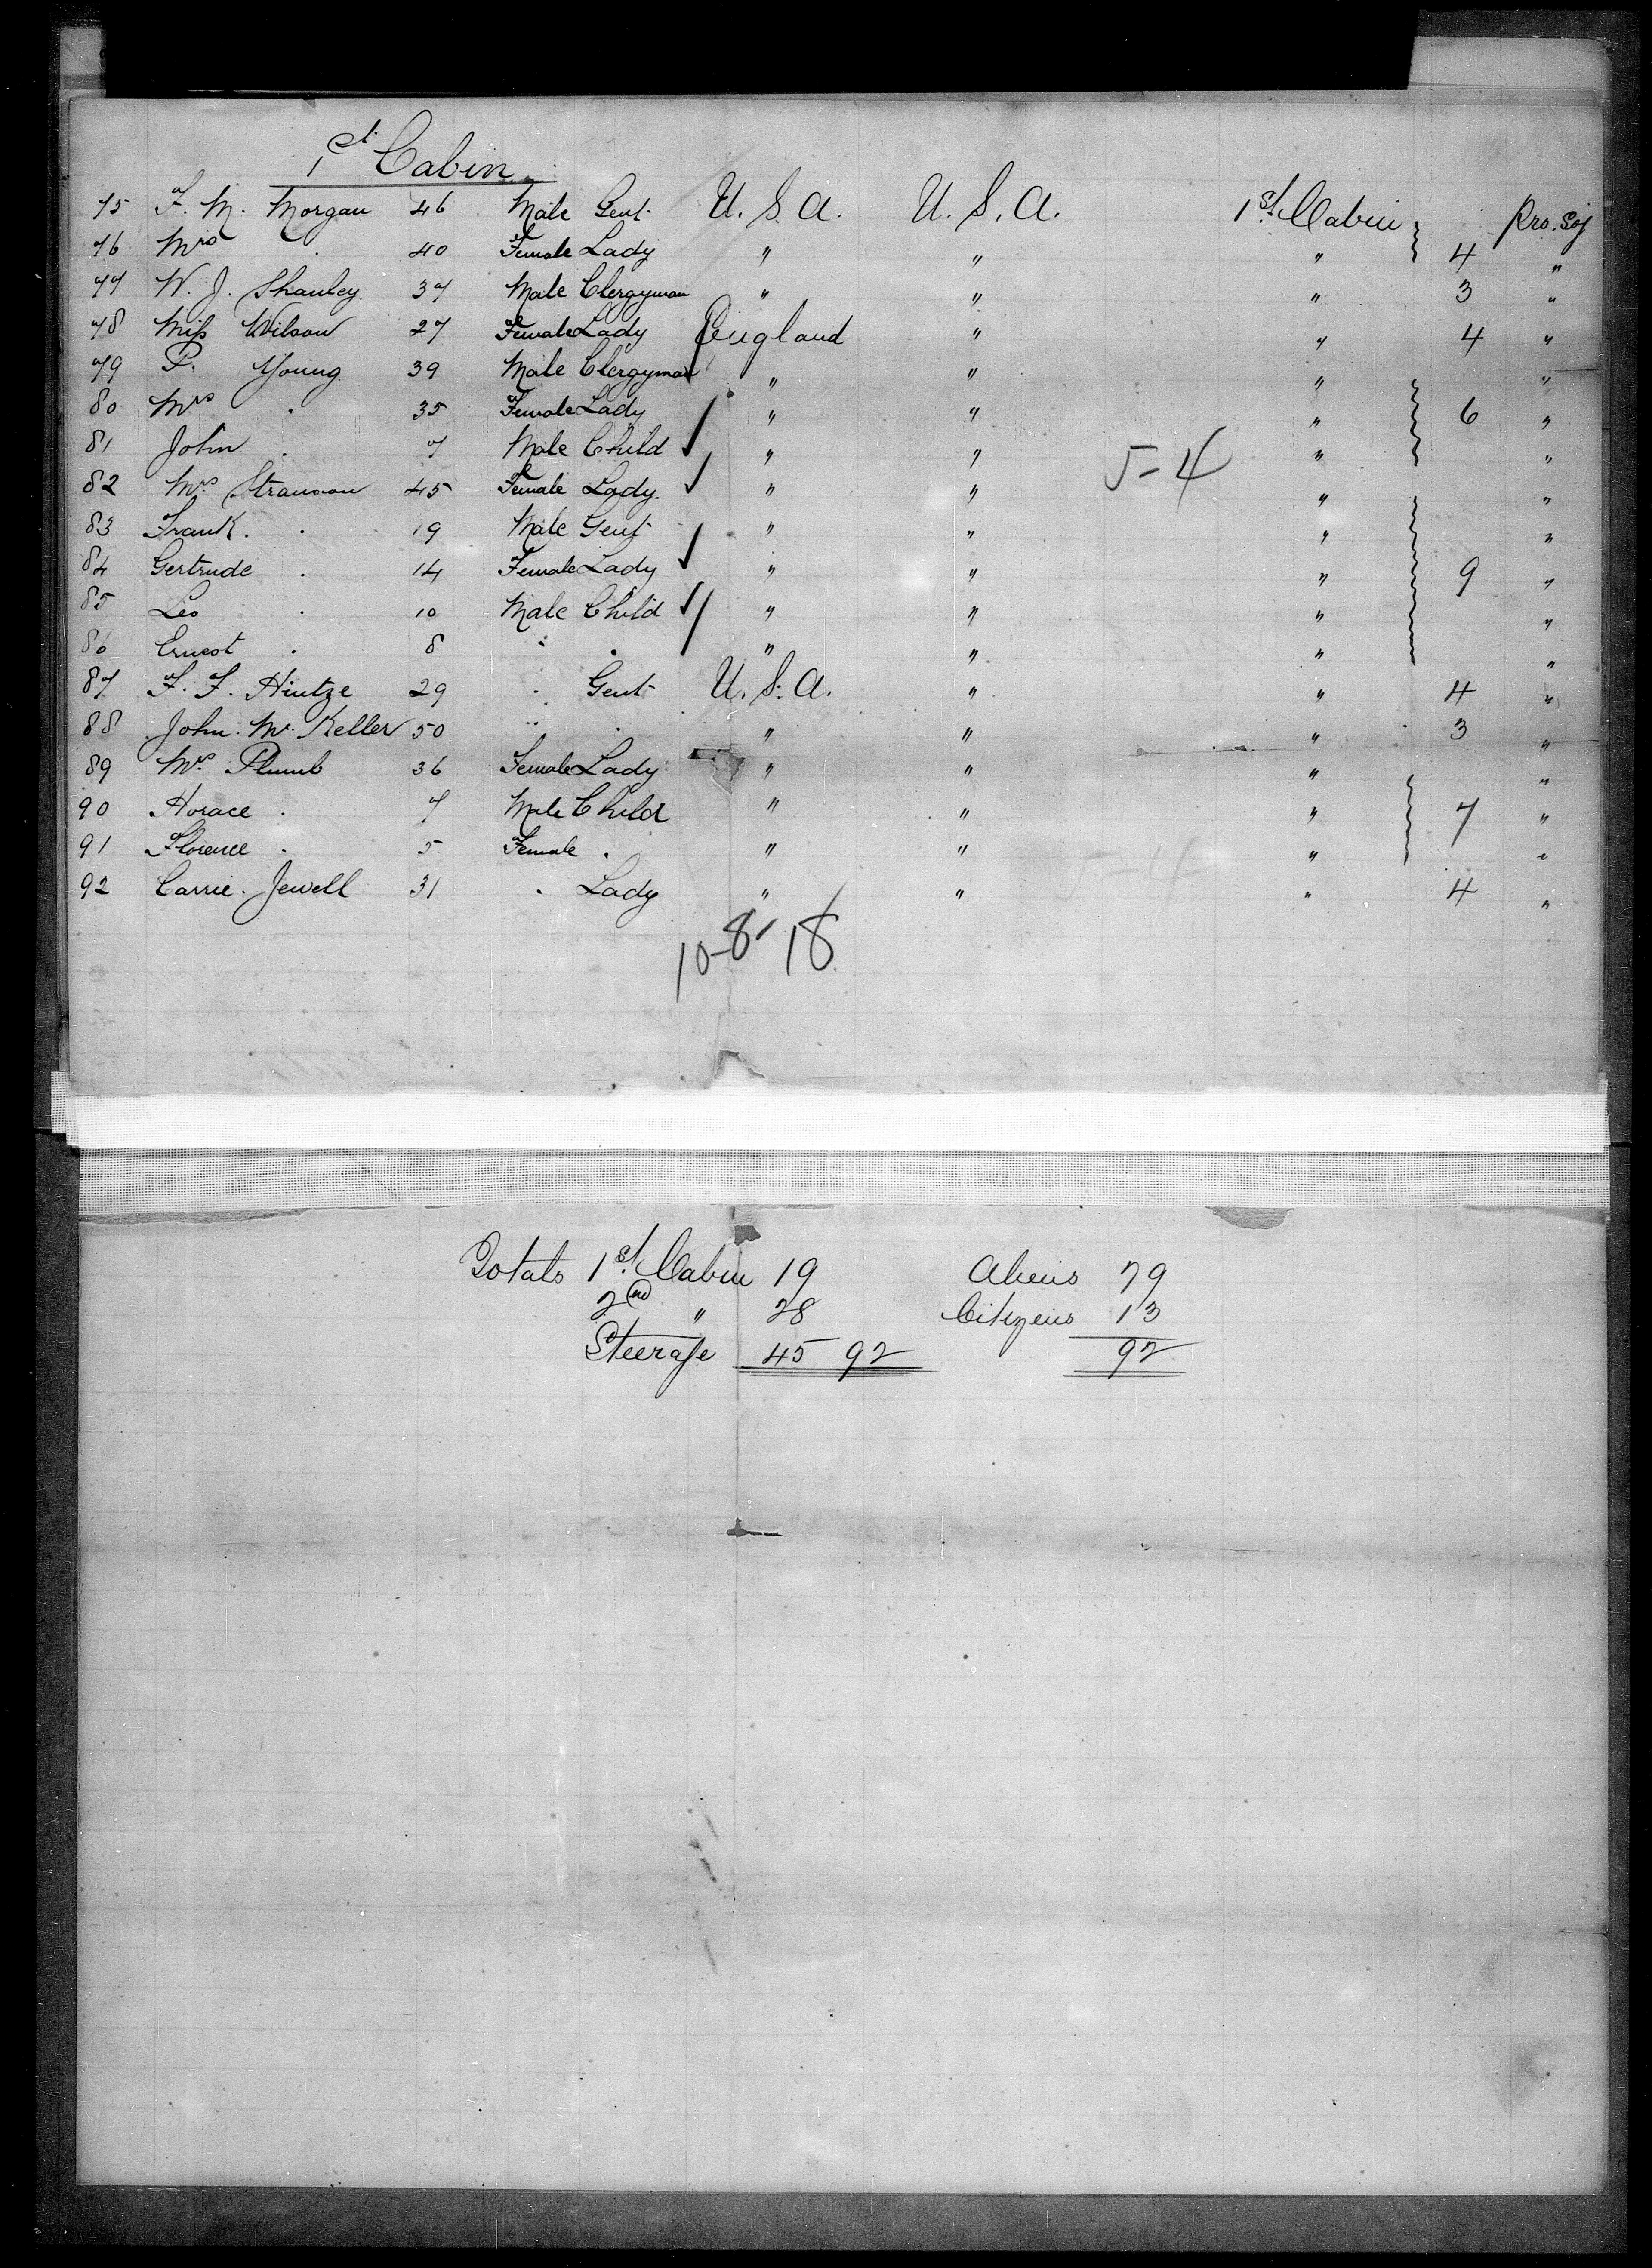 1st Cabin
75 F. M. Morgan 46 Male Gent. U. S. A. U. S. A. 1st Cabin Pro. Soj
76 Mrs . 40 Female Lady " " " 4 "
77 W. J. Shanley 37 Male Clergyman " " " 3 "
78 Miss Wilson 27 Female Lady England " " 4 "
79 P. Young 39 Male Clergyman " " " "
80 Mrs . 35 Female Lady " " " 6 "
81 John . 7 Male Child " " " "
5-4
82 Mrs 45 Female Lady " " " "
83 Frank . 19 Male Gent " " " "
84 Gertrude . 14 Female Lady " " " 9 "
85 Leo . 10 Male Child " " " "
86 Ernest . 8 " . " " " "
87 F. F. Hintze 29 . Gent U. S. A. " " 4 "
88 John Mc Keller 50 " . " " " 3 "
89 Mrs Plumb 36 Female Lady " " " "
90 Horace . 7 Male Child " " " 7 "
91 Florence . 5 Female . " " " "
92 Carrie Jewell 31 . Lady " " " 4 "
10-8-18
Totals 1st Cabin 19 Aliens 79
2nd " 28 Citizens 13
Steerage 45 92 92